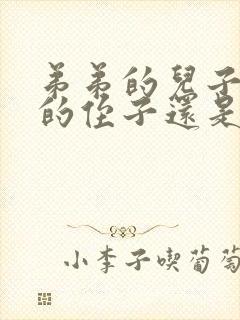 弟弟的兒子
的侄子還是
小李子喫葡萄